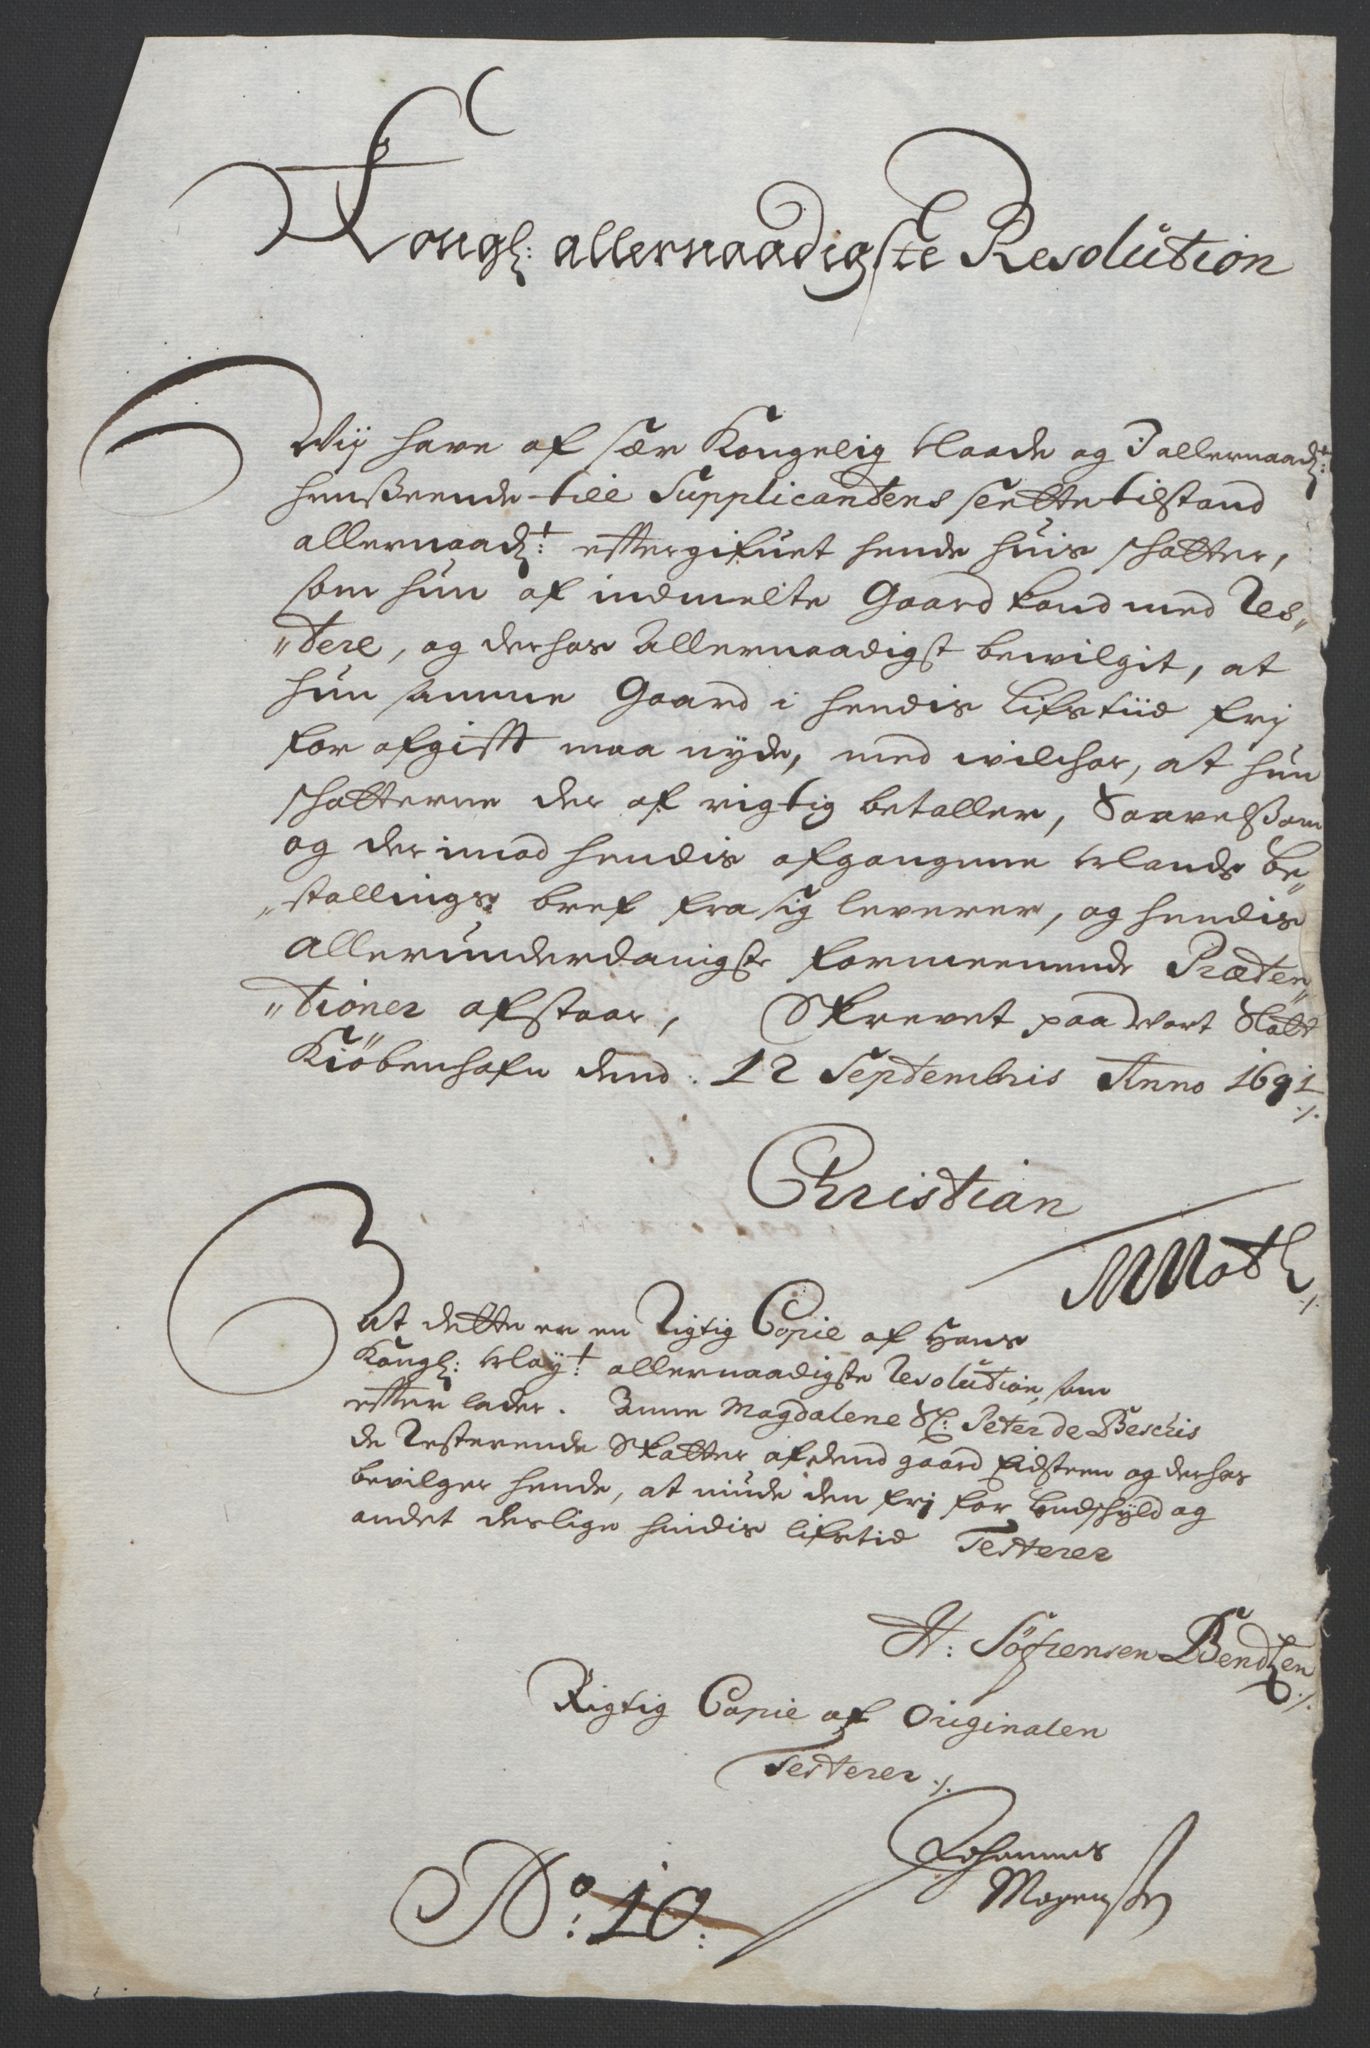 Kongl: allernaadigste Resolution
Wij have af sær Kongelig Naade og J allernaad:t
henseende till Supplicandens slette tilstand
allernaad:t eftergifuet hende huis schatter,
som hun af indmelte Gaard kand med Res„
„tere, og derhos Allernaadigst bewilgit, at
hun samme Gaard i hendis Lifstiid frj
for afgifft maa nyde, med wilchor, at hun
schatterne der af rigtig betaller, Saavelsom
og derimod hendis afgangne Mands be„
„stallings bref fra sig leverer, og hendis
allerunderdanigste formeenende Præten„
„tioner afstaar, Skrevet paa wort Slott
Kiöbenhafn dend. 12 Septembris Anno 1691 ./.
Christian
MMoth ./.
At dette er en Rigtig Copie af Hans
Kongl: May:t allernaadigste Resolution, som
efter lader. Anne Magdalene Sl: Peter de Beschis
de Resterende Skatter af dend gaard Eidsteen og derhos
bevilger hende, at niude den frj for Landschyld og
andet deslige hindis lifstid Testerer
H: Söfrensen Bendtzen ./.
Rigtig Copie af Originalen
Testerer ./.
Johannes
Mogensen
No: 10: